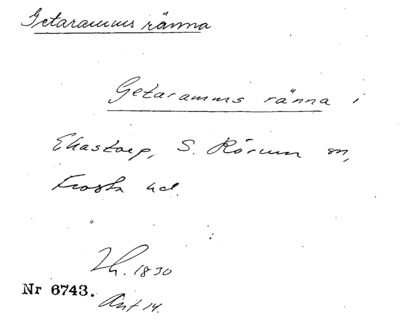 Getaramms ränna
Getaramms ränna i
Ekastorp, S. Rörum sn,
Frosta hd.
Lh. 1830
Nr 6743.
Ant 14.